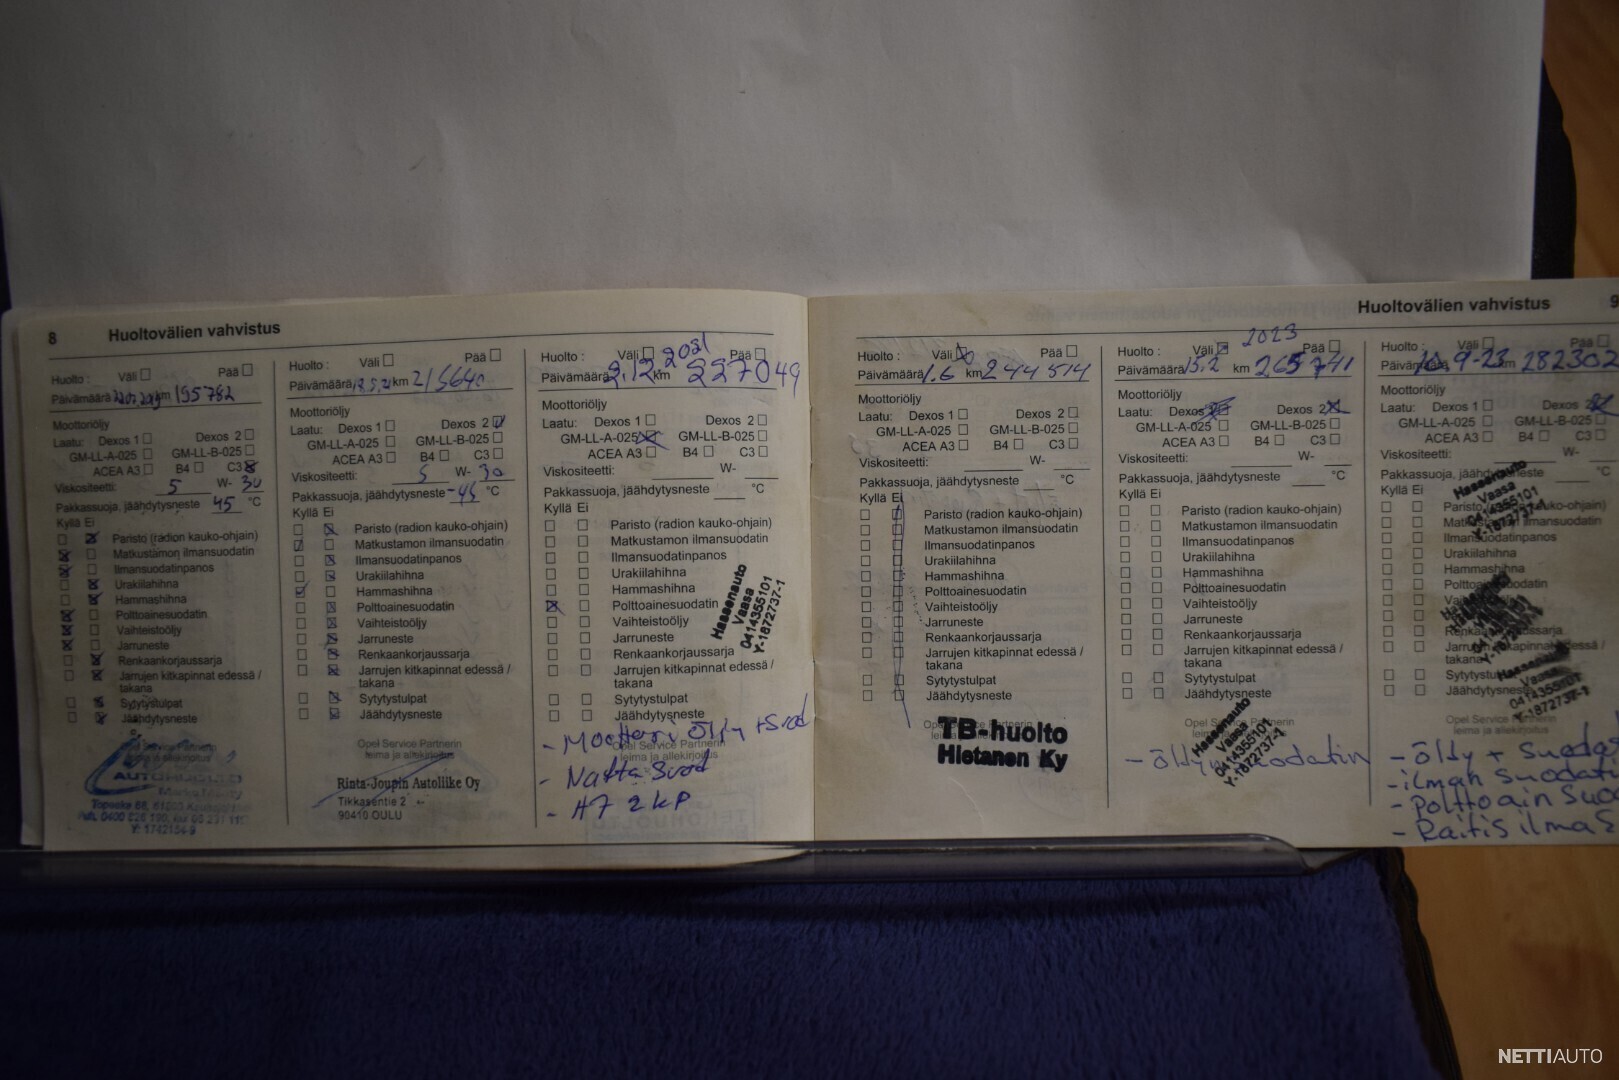 8 Huoltovälien vahvistus
Huolto : Väli Pää
Päivämäärä km 195782
Moottoriöljy
Laatu: Dexos 1 Dexos 2
GM-LL-A-025 GM-LL-B-025
ACEA A3 B4 C3
Viskositeetti: 5 W- 30
Pakkassuoja, jäähdytysneste 45 °C
Kyllä Ei
Paristo (radion kauko-ohjain)
Matkustamon ilmansuodatin
Ilmansuodatinpanos
Urakiilahihna
Hammashihna
Polttoainesuodatin
Vaihteistoöljy
Jarruneste
Renkaankorjaussarja
Jarrujen kitkapinnat edessä /
takana
Sytytystulpat
Jäähdytysneste
Opel Service Partnerin
leima ja allekirjoitus
AUTOHUOLTO
Huolto : Väli Pää
Päivämäärä 12.5.21 km 215640
Moottoriöljy
Laatu: Dexos 1 Dexos 2
GM-LL-A-025 GM-LL-B-025
ACEA A3 B4 C3
Viskositeetti: 5 W- 30
Pakkassuoja, jäähdytysneste -45 °C
Kyllä Ei
Paristo (radion kauko-ohjain)
Matkustamon ilmansuodatin
Ilmansuodatinpanos
Urakiilahihna
Hammashihna
Polttoainesuodatin
Vaihteistoöljy
Jarruneste
Renkaankorjaussarja
Jarrujen kitkapinnat edessä /
takana
Sytytystulpat
Jäähdytysneste
Opel Service Partnerin
leima ja allekirjoitus
Rinta-Joupin Autoliike Oy
Tikkasentie 2
90410 OULU
Huolto : Väli Pää
Päivämäärä 2.12.2021 km 227049
Moottoriöljy
Laatu: Dexos 1 Dexos 2
GM-LL-A-025 GM-LL-B-025
ACEA A3 B4 C3
Viskositeetti: W-
Pakkassuoja, jäähdytysneste °C
Kyllä Ei
Paristo (radion kauko-ohjain)
Matkustamon ilmansuodatin
Ilmansuodatinpanos
Urakiilahihna
Hammashihna
Polttoainesuodatin
Vaihteistoöljy
Jarruneste
Renkaankorjaussarja
Jarrujen kitkapinnat edessä /
takana
Sytytystulpat
Jäähdytysneste
Hassenauto
Vaasa
0414355101
Y-1872737-1
Opel Service Partnerin
leima ja allekirjoitus
- Moottori öljy + suod
- Natta suod
- H7 2 kp
Huoltovälien vahvistus 9
Huolto : Väli Pää
Päivämäärä 1.6 km 244 514
Moottoriöljy
Laatu: Dexos 1 Dexos 2
GM-LL-A-025 GM-LL-B-025
ACEA A3 B4 C3
Viskositeetti: W-
Pakkassuoja, jäähdytysneste °C
Kyllä Ei
Paristo (radion kauko-ohjain)
Matkustamon ilmansuodatin
Ilmansuodatinpanos
Urakiilahihna
Hammashihna
Polttoainesuodatin
Vaihteistoöljy
Jarruneste
Renkaankorjaussarja
Jarrujen kitkapinnat edessä /
takana
Sytytystulpat
Jäähdytysneste
TB-huolto
Hietanen Ky
Huolto : Väli Pää
2023
Päivämäärä 15.2 km 265 741
Moottoriöljy
Laatu: Dexos 1 Dexos 2
GM-LL-A-025 GM-LL-B-025
ACEA A3 B4 C3
Viskositeetti: W-
Pakkassuoja, jäähdytysneste °C
Kyllä Ei
Paristo (radion kauko-ohjain)
Matkustamon ilmansuodatin
Ilmansuodatinpanos
Urakiilahihna
Hammashihna
Polttoainesuodatin
Vaihteistoöljy
Jarruneste
Renkaankorjaussarja
Jarrujen kitkapinnat edessä /
takana
Sytytystulpat
Jäähdytysneste
Hassenauto
Vaasa
0414355101
Y-1872737-1
- öljyn suodatin
Huolto : Väli Pää
Päivämäärä 10.9-23 km 282302
Moottoriöljy
Laatu: Dexos 1 Dexos 2
GM-LL-A-025 GM-LL-B-025
ACEA A3 B4 C3
Viskositeetti: W-
Pakkassuoja, jäähdytysneste °C
Kyllä Ei
Hassenauto
Vaasa
0414355101
Y-1872737-1
Ilmansuodatinpanos
Urakiilahihna
Hammashihna
Vaihteistoöljy
Jarruneste
takana
Jäähdytysneste
- öljy +
- ilman
- Polttoain
- Raitis ilma
NETTIAUTO